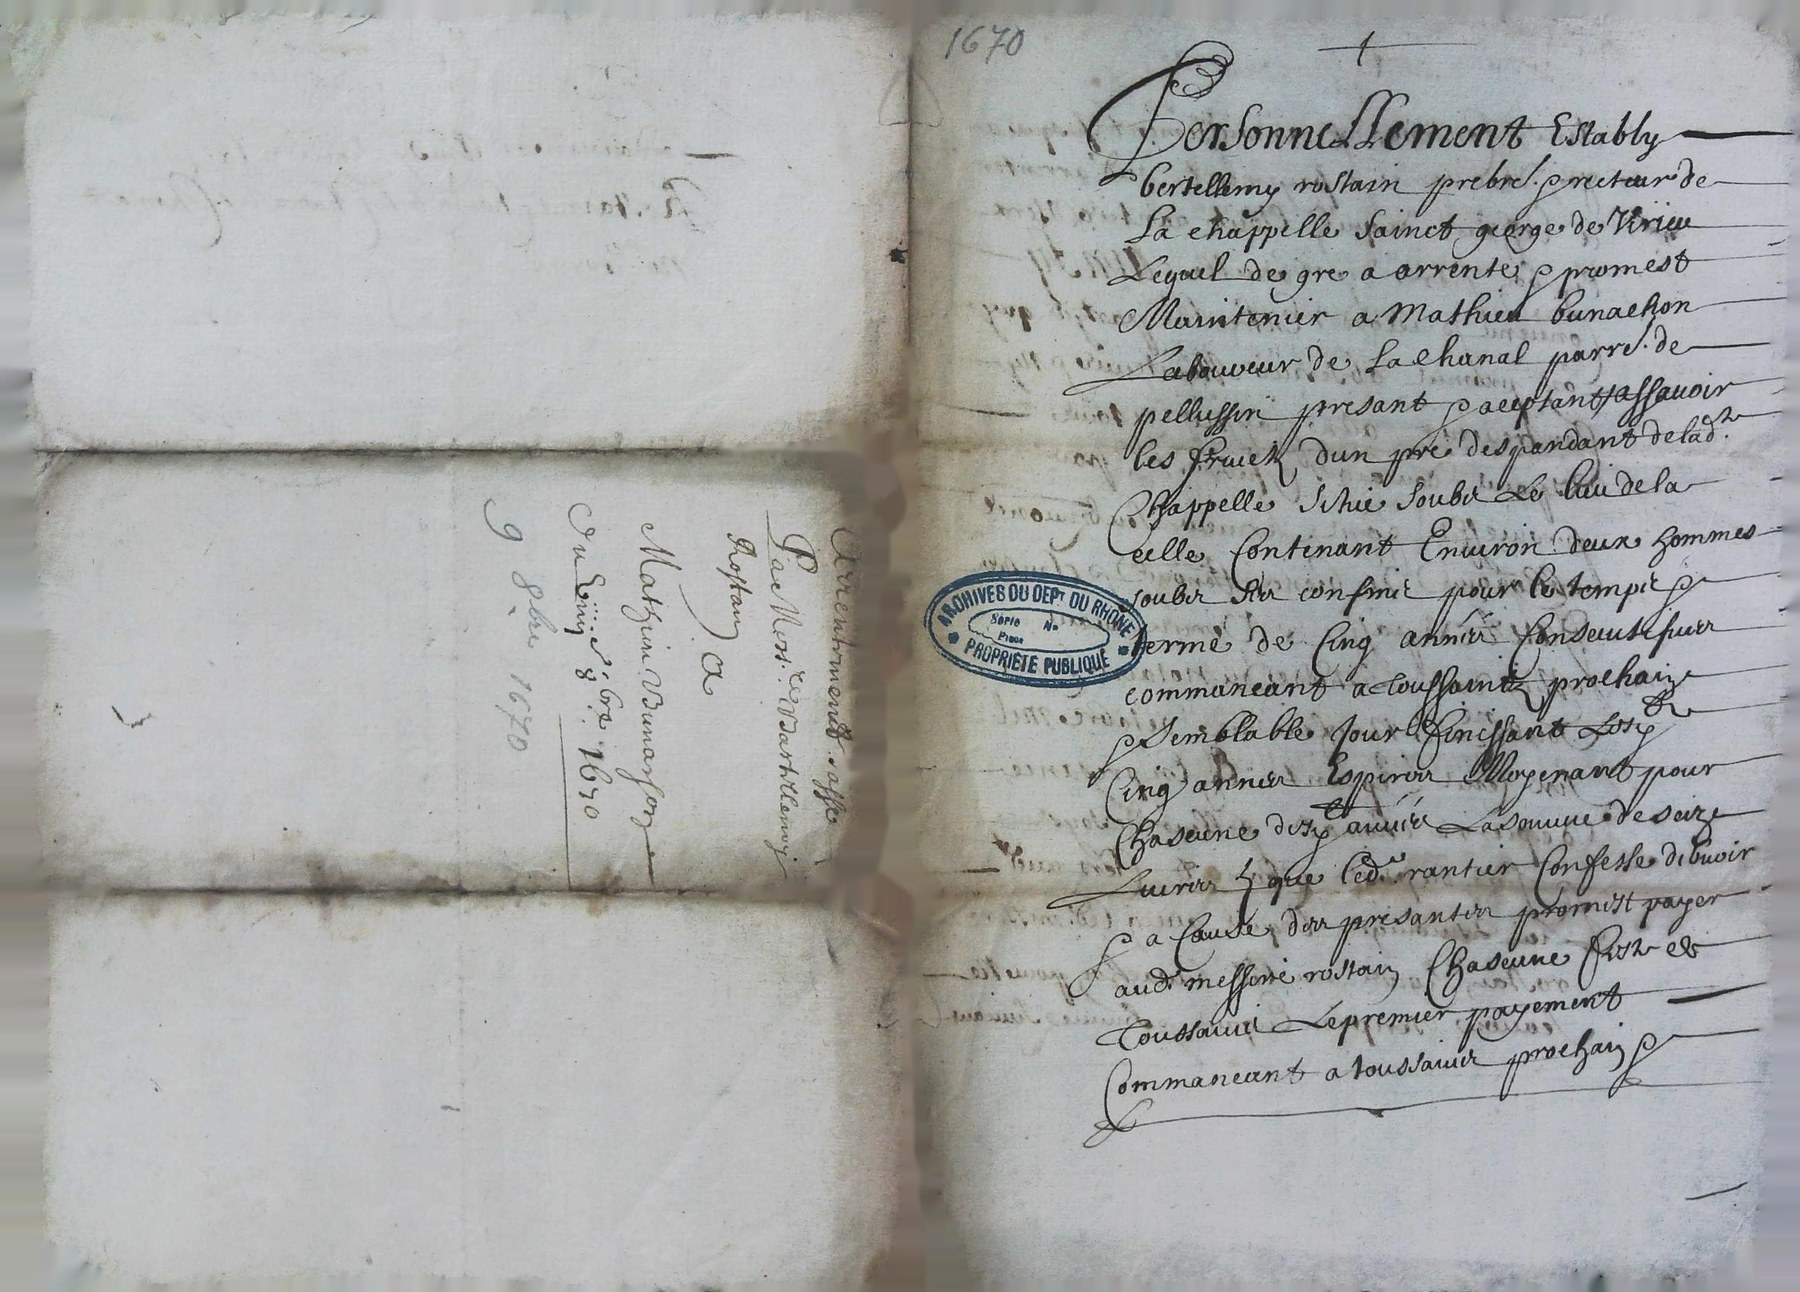 Arrentement passé
Par Messire Barthellemy
Rostaing
a
Mathieu Bunachon
Du 8bre 1670
9 8bre 1670
1670
Personnellement Estably
bertellemy rostain prebre & recteur de
La chappelle Sainct george de Virieu
Lequel de gre a arrente & promest
Maintenir a Mathieu bunachon
Laboureur de La Chanal parre. de
pellussin presant & aceptant assavoir
les fruictz dun pre despandant de lad.te
Chappelle Scitué soubz Le lieu de la
celle Contenant Environ deux hommes
soubz ses confins pour le temps &
terme de Cinq années Consecutifves
commancant a toussaintz prochain
& Semblable Jour finissant Lesd
Cinq annees Expirees Moyenant pour
Chascune desd années La somme de seize
Livres que led. rantier Confesse debvoir
& a Cause des presantes promest payer
aud. messire rostain Chascune feste de
Toussainctz Le premier payement
Commancant a toussainctz prochain &
ARCHIVES DU DEPT DU RHÔNE
Série No
Pièce
PROPRIÉTÉ PUBLIQUE